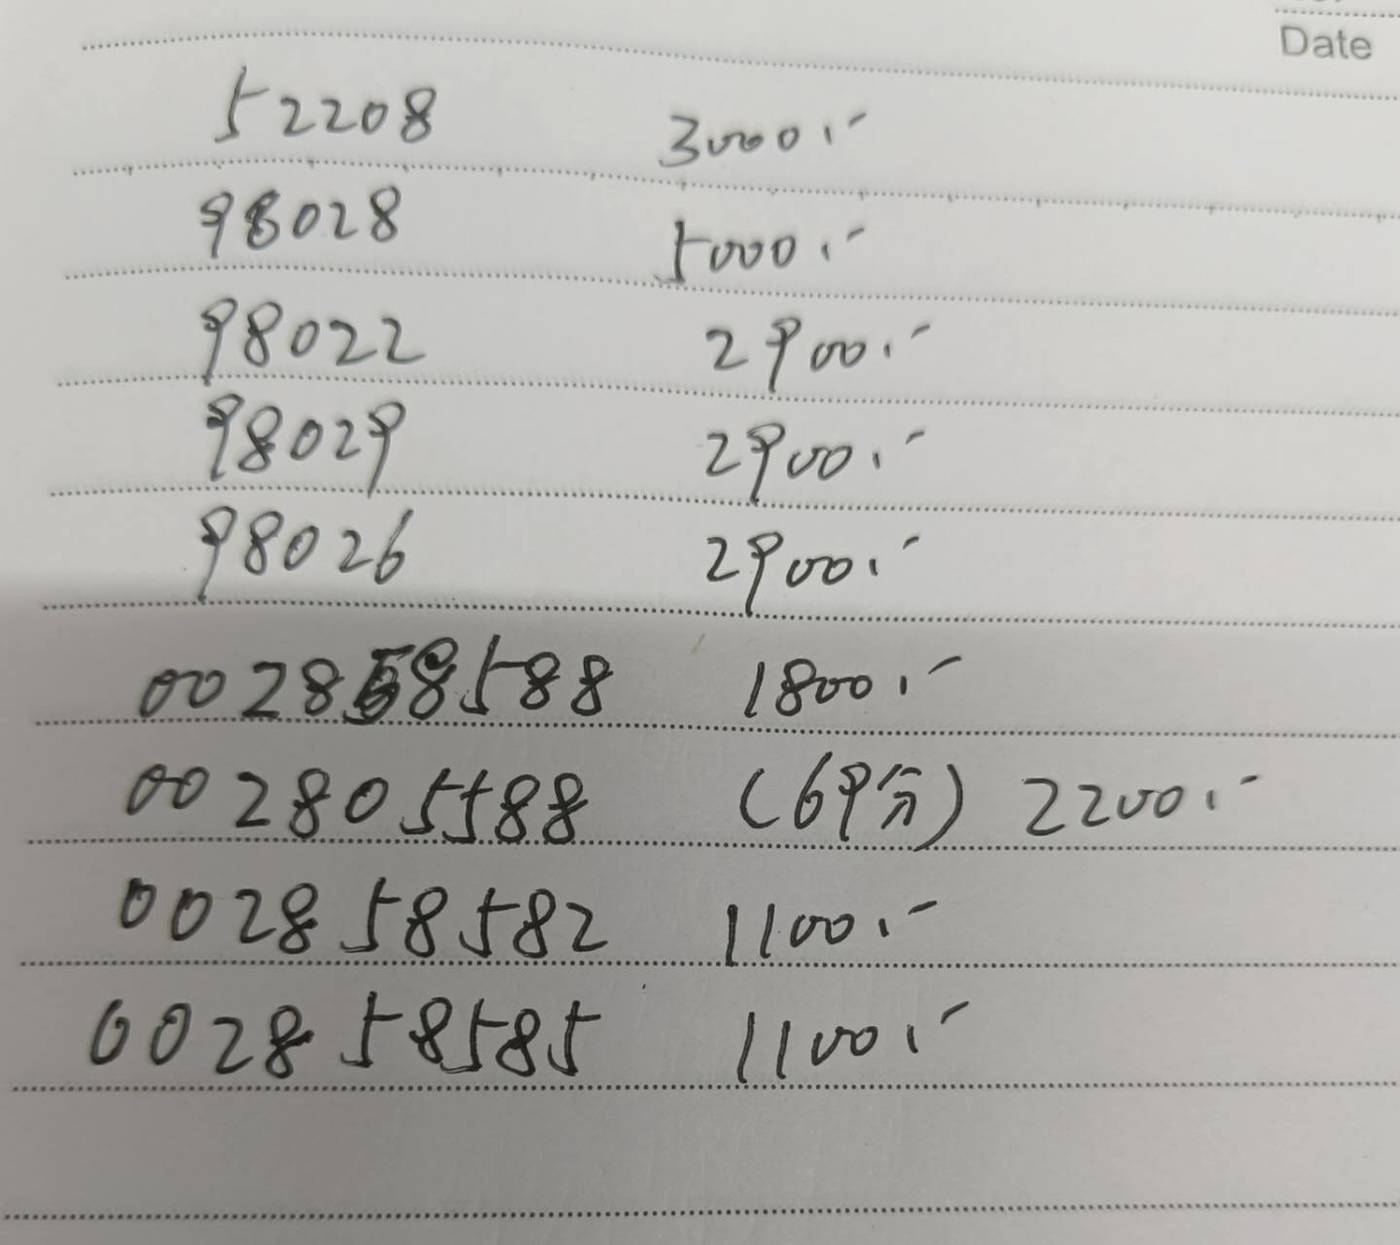 Date
52208 3000.-
98028 5000.-
98022 2900.-
98029 2900.-
98026 2900.-
002858588 1800.-
002805588 (69分) 2200.-
002858582 1100.-
002858585 1100.-